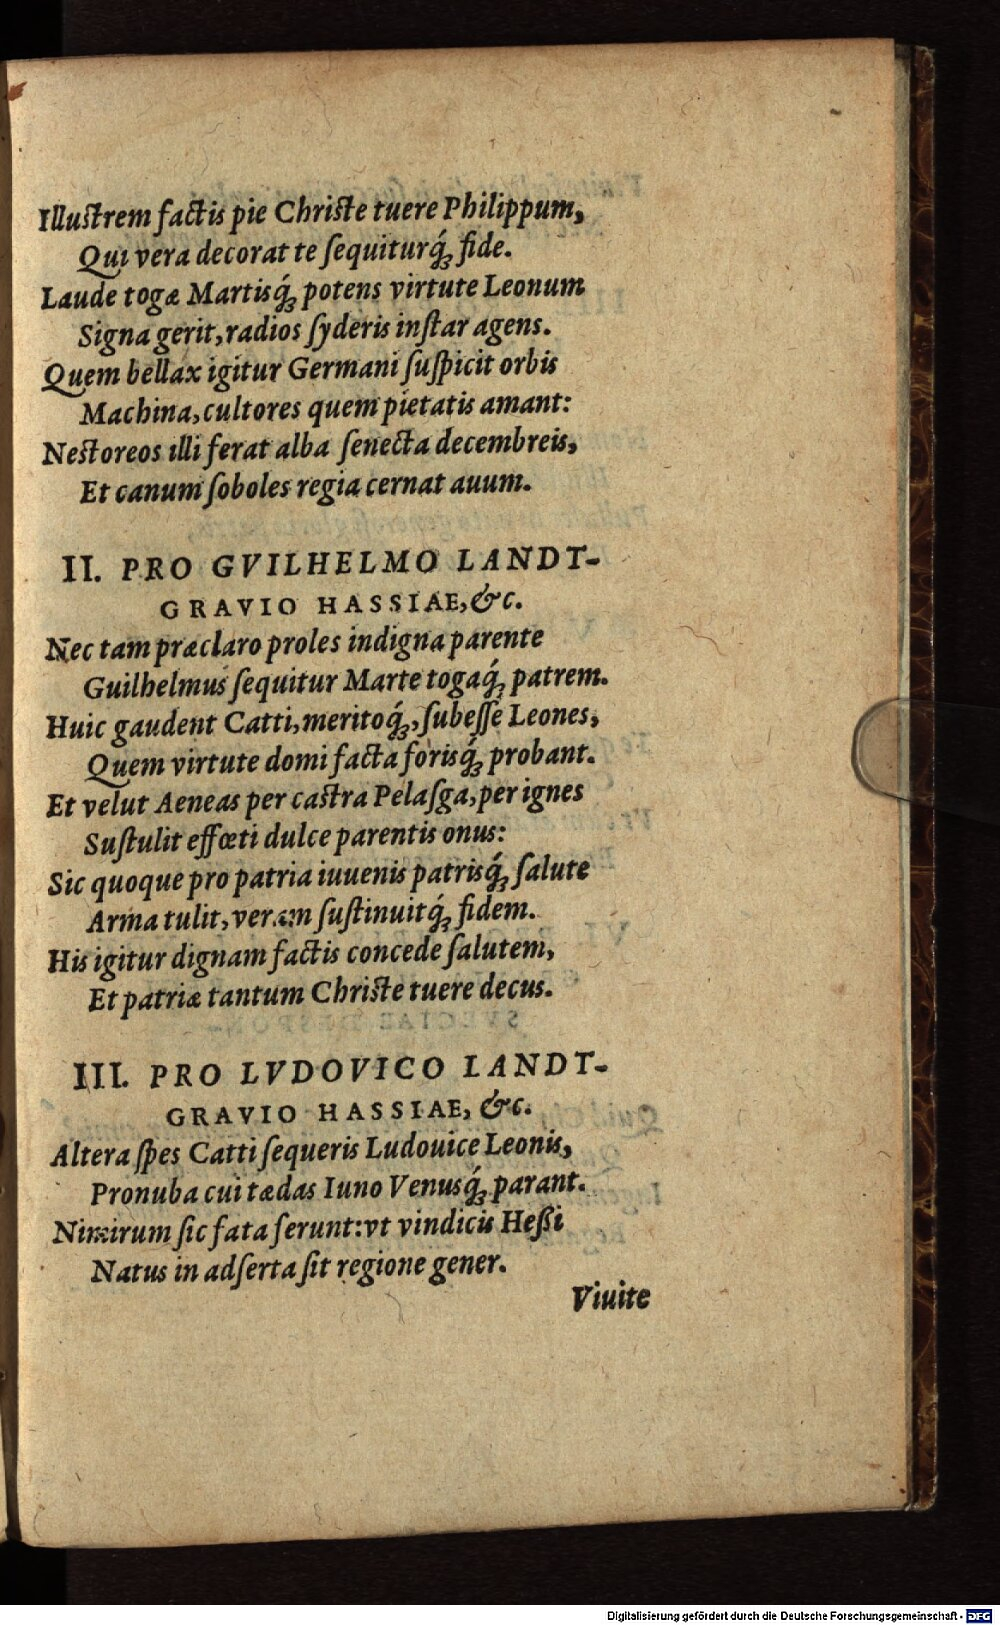 Illuſtrem factis pie Chriſte tuere Philippum,
Qui vera decorat te ſequiturq́ꝫ fide.
Laude togæ Martisq́ꝫ potens virtute Leonum
Signa gerit, radios ſyderis inſtar agens.
Quem bellax igitur Germani ſuſpicit orbis
Machina, cultores quem pietatis amant:
Neſtoreos illi ferat alba ſenecta decembreis,
Et canum ſoboles regia cernat auum.
II. PRO GVILHELMO LANDT-
GRAVIO HASSIAE, &c.
Nec tam præclaro proles indigna parente
Guilhelmus ſequitur Marte togaq́ꝫ patrem.
Huic gaudent Catti, meritoq́ꝫ, ſubeſſe Leones,
Quem virtute domi facta forisq́ꝫ probant.
Et velut Aeneas per caſtra Pelaſga, per ignes
Suſtulit effœti dulce parentis onus:
Sic quoque pro patria iuuenis patrisq́ꝫ ſalute
Arma tulit, veram ſuſtinuitq́ꝫ fidem.
His igitur dignam factis concede ſalutem,
Et patriæ tantum Chriſte tuere decus.
III. PRO LVDOVICO LANDT-
GRAVIO HASSIAE, &c.
Altera ſpes Catti ſequeris Ludouice Leonis,
Pronuba cui tædas Iuno Venusq́ꝫ parant.
Nimirum ſic fata ferunt: vt vindicis Heßi
Natus in adſerta ſit regione gener.
Viuite
Digitalisierung gefördert durch die Deutsche Forschungsgemeinschaft - DFG